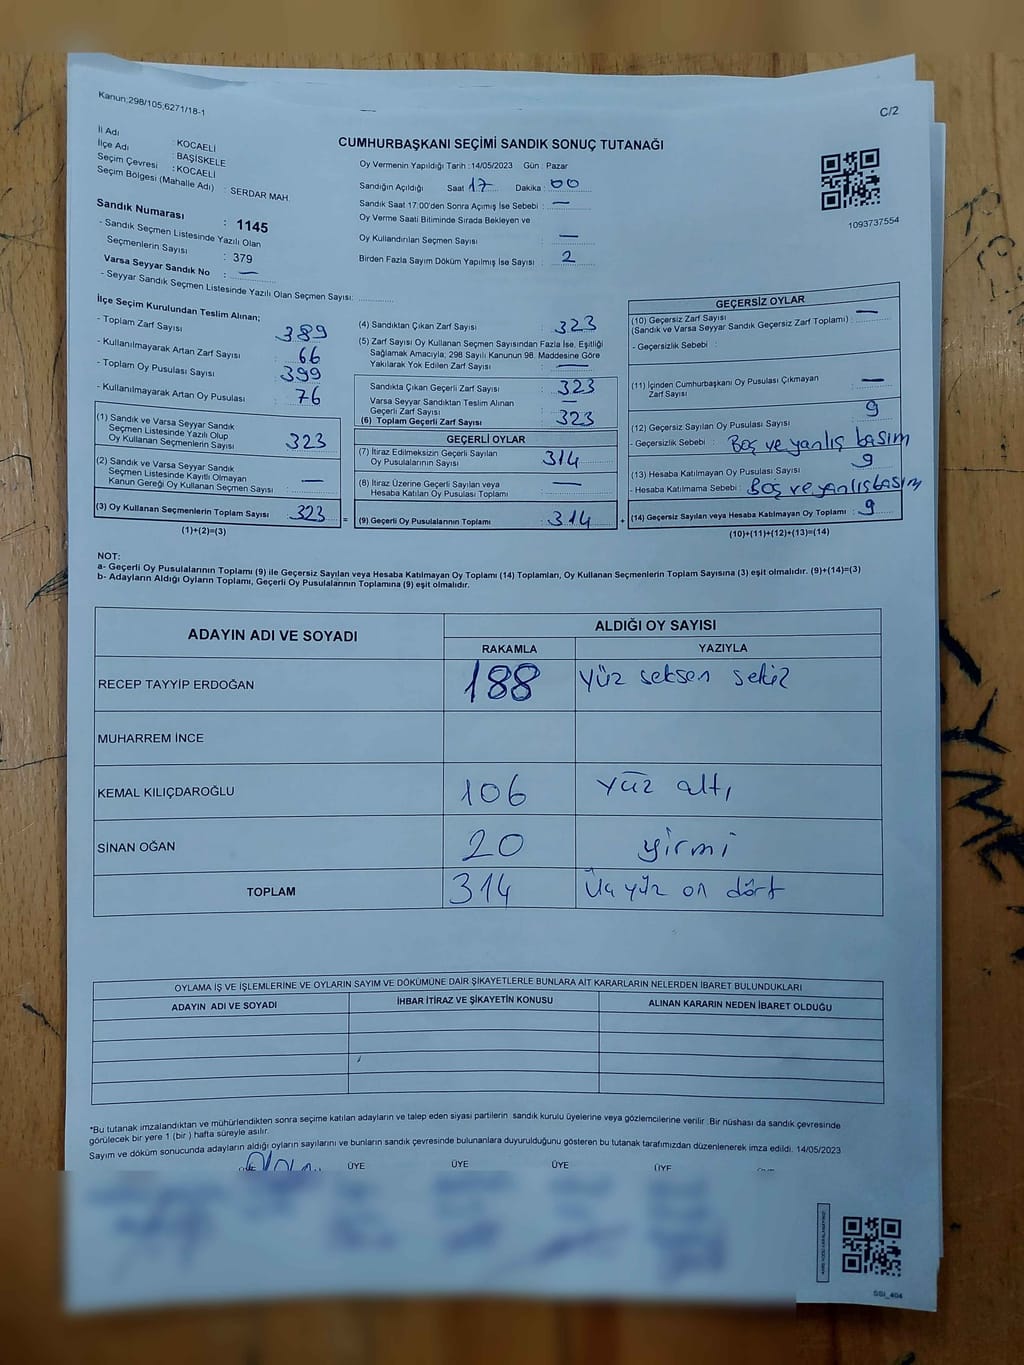 Kanun;298/105,6271/18-1
C/2
CUMHURBAŞKANI SEÇİMİ SANDIK SONUÇ TUTANAĞI
İl Adı : KOCAELİ
İlçe Adı : BAŞİSKELE
Seçim Çevresi : KOCAELİ
Seçim Bölgesi (Mahalle Adı) : SERDAR MAH.
Sandık Numarası : 1145
- Sandık Seçmen Listesinde Yazılı Olan
Seçmenlerin Sayısı : 379
Varsa Seyyar Sandık No : —
- Seyyar Sandık Seçmen Listesinde Yazılı Olan Seçmen Sayısı: ..............
Oy Vermenin Yapıldığı Tarih :14/05/2023 Gün : Pazar
Sandığın Açıldığı Saat 17 Dakika : 00
Sandık Saat 17:00'den Sonra Açımış İse Sebebi : —
Oy Verme Saati Bitiminde Sırada Bekleyen ve
Oy Kullandırılan Seçmen Sayısı : —
Birden Fazla Sayım Döküm Yapılmış İse Sayısı : 2
1093737554
İlçe Seçim Kurulundan Teslim Alınan;
- Toplam Zarf Sayısı : 389
- Kullanılmayarak Artan Zarf Sayısı : 66
- Toplam Oy Pusulası Sayısı : 399
- Kullanılmayarak Artan Oy Pusulası : 76
(1) Sandık ve Varsa Seyyar Sandık
Seçmen Listesinde Yazılı Olup
Oy Kullanan Seçmenlerin Sayısı : 323
(2) Sandık ve Varsa Seyyar Sandık
Seçmen Listesinde Kayıtlı Olmayan
Kanun Gereği Oy Kullanan Seçmen Sayısı : —
(3) Oy Kullanan Seçmenlerin Toplam Sayısı : 323 =
(1)+(2)=(3)
(4) Sandıktan Çıkan Zarf Sayısı : 323
(5) Zarf Sayısı Oy Kullanan Seçmen Sayısından Fazla İse, Eşitliği
Sağlamak Amacıyla; 298 Sayılı Kanunun 98. Maddesine Göre
Yakılarak Yok Edilen Zarf Sayısı : —
Sandıkta Çıkan Geçerli Zarf Sayısı : 323
Varsa Seyyar Sandıktan Teslim Alınan
Geçerli Zarf Sayısı : —
(6) Toplam Geçerli Zarf Sayısı : 323
GEÇERLİ OYLAR
(7) İtiraz Edilmeksizin Geçerli Sayılan
Oy Pusulalarının Sayısı : 314
(8) İtiraz Üzerine Geçerli Sayılan veya
Hesaba Katılan Oy Pusulası Toplamı : —
(9) Geçerli Oy Pusulalarının Toplamı : 314 +
GEÇERSİZ OYLAR
(10) Geçersiz Zarf Sayısı
(Sandık ve Varsa Seyyar Sandık Geçersiz Zarf Toplamı) : —
- Geçersizlik Sebebi :
(11) İçinden Cumhurbaşkanı Oy Pusulası Çıkmayan
Zarf Sayısı : —
(12) Geçersiz Sayılan Oy Pusulası Sayısı : 9
- Geçersizlik Sebebi : Boş ve yanlış basım
(13) Hesaba Katılmayan Oy Pusulası Sayısı : 9
- Hesaba Katılmama Sebebi : Boş ve yanlış basım
(14) Geçersiz Sayılan veya Hesaba Katılmayan Oy Toplamı : 9
(10)+(11)+(12)+(13)=(14)
NOT:
a- Geçerli Oy Pusulalarının Toplamı (9) ile Geçersiz Sayılan veya Hesaba Katılmayan Oy Toplamı (14) Toplamları, Oy Kullanan Seçmenlerin Toplam Sayısına (3) eşit olmalıdır. (9)+(14)=(3)
b- Adayların Aldığı Oyların Toplamı, Geçerli Oy Pusulalarının Toplamına (9) eşit olmalıdır.
ADAYIN ADI VE SOYADI ALDIĞI OY SAYISI
RAKAMLA YAZIYLA
RECEP TAYYİP ERDOĞAN 188 yüz seksen sekiz
MUHARREM İNCE
KEMAL KILIÇDAROĞLU 106 yüz altı
SİNAN OĞAN 20 yirmi
TOPLAM 314 Üç yüz on dört
OYLAMA İŞ VE İŞLEMLERİNE VE OYLARIN SAYIM VE DÖKÜMÜNE DAİR ŞİKAYETLERLE BUNLARA AİT KARARLARIN NELERDEN İBARET BULUNDUKLARI
ADAYIN ADI VE SOYADI İHBAR İTİRAZ VE ŞİKAYETİN KONUSU ALINAN KARARIN NEDEN İBARET OLDUĞU
*Bu tutanak imzalandıktan ve mühürlendikten sonra seçime katılan adayların ve talep eden siyasi partilerin sandık kurulu üyelerine veya gözlemcilerine verilir .Bir nüshası da sandık çevresinde
görülecek bir yere 1 (bir ) hafta süreyle asılır.
Sayım ve döküm sonucunda adayların aldığı oyların sayılarını ve bunların sandık çevresinde bulunanlara duyurulduğunu gösteren bu tutanak tarafımızdan düzenlenerek imza edildi. 14/05/2023
ÜYE ÜYE ÜYE ÜYE
SSI_404